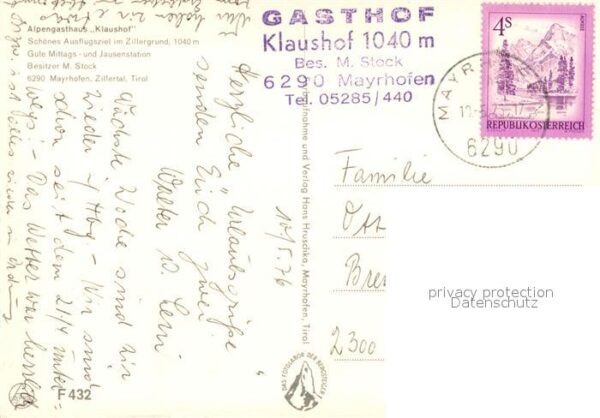 Alpengasthaus „Klaushof"
Schönes Ausflugsziel im Zillergrund, 1040 m
Gute Mittags- und Jausenstation
Besitzer M. Stock
6290 Mayrhofen, Zillertal, Tirol
GASTHOF
Klaushof 1040 m
Bes. M. Stock
6290 Mayrhofen
Tel. 05285/440
4S
REPUBLIK ÖSTERREICH
6290
10/5.76
Herzliche „Urlaubsgrüße"
senden Euch zwei
Walter u.
Nächste Woche sind wir
wieder i/ Hbg. - Wir sind
schon seit dem 21/4 unter=
wegs! - Das Wetter war herrlich
Familie
Ott
Bre
2300
Aufnahme und Verlag Hans Hruschka, Mayrhofen, Tirol
DAS FOTOLABOR DER BERGSTEIGER
F 432
privacy protection
Datenschutz